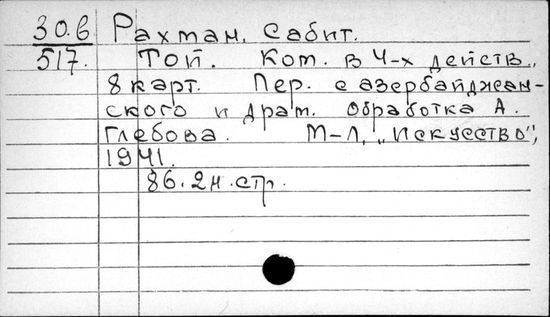 30.6 Рахман, Сабит.
517. Той. Ком. в 4-х действ.,
8 карт. Пер. с азербайджан-
ского и драт. обработка А.
Глебова. М-Л, "Искусство",
1941.
86. 2н. стр.